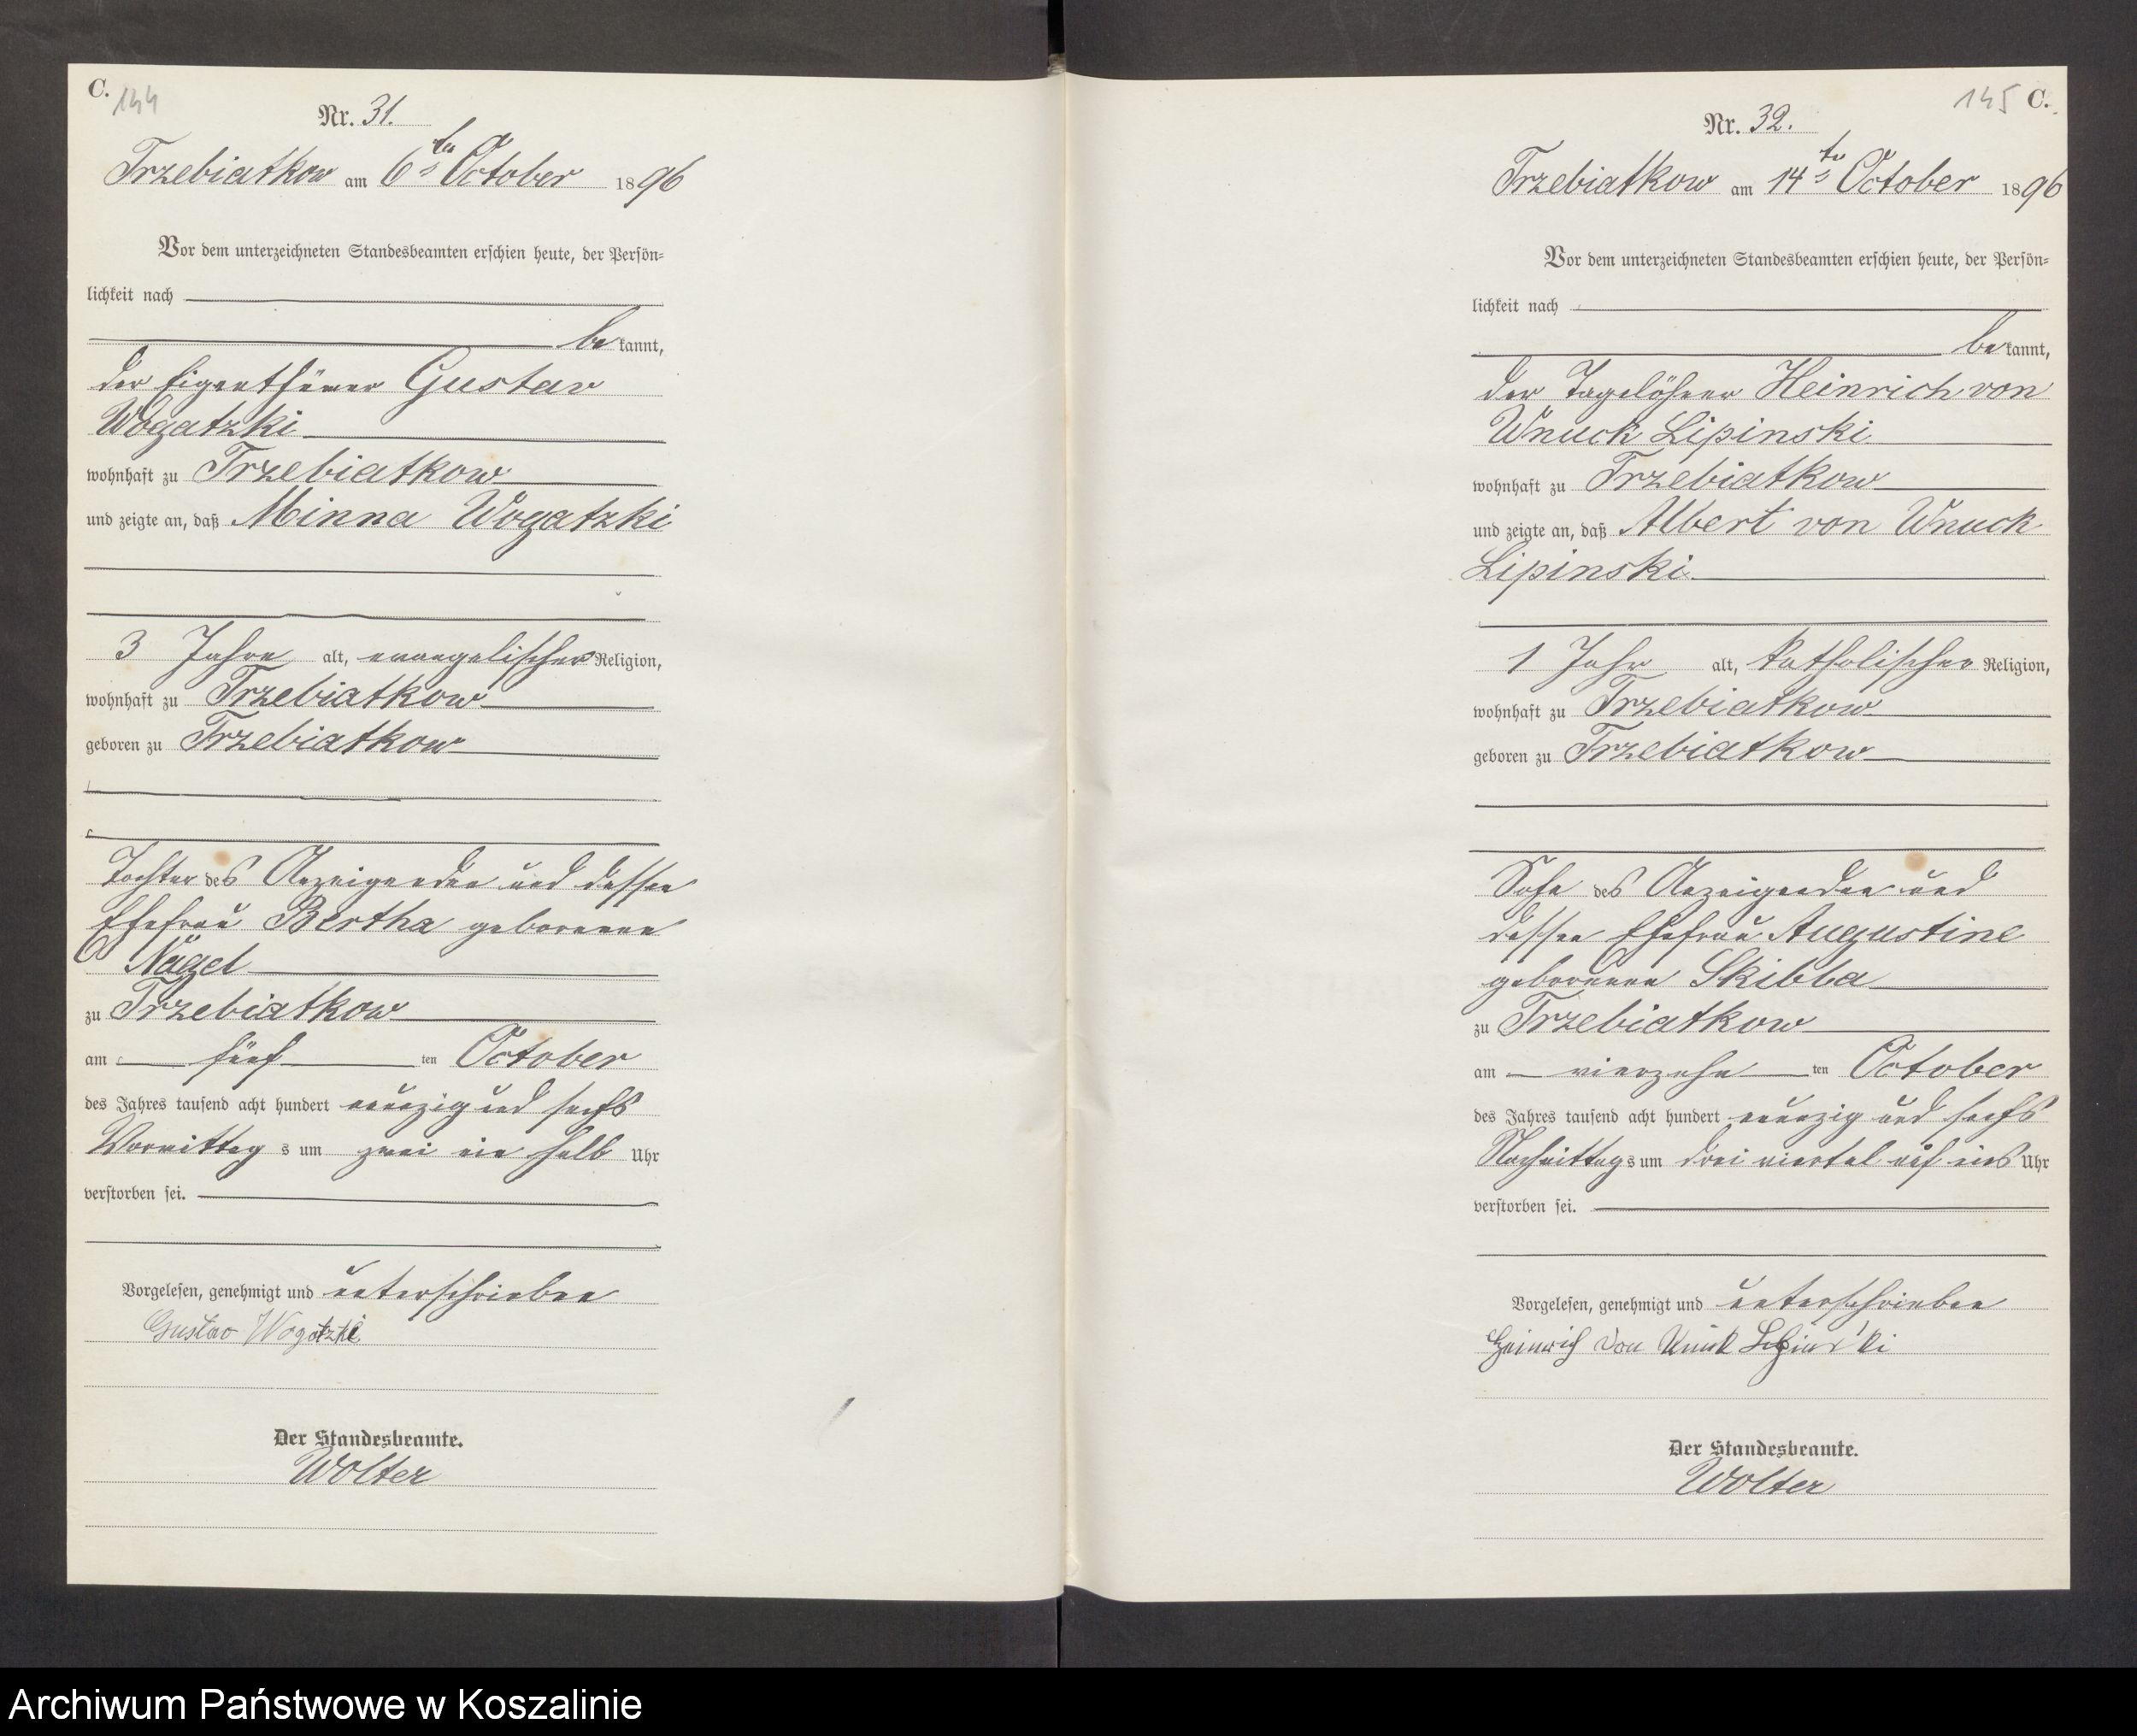 C. 144
Nr. 31.
Trzebiatkow am 6ten October 1896
Vor dem unterzeichneten Standesbeamten erschien heute, der Persön-
lichkeit nach
bekannt,
der Eigenthümer Gustav
Wogatzki
wohnhaft zu Trzebiatkow
und zeigte an, daß Minna Wogatzki
3 Jahre alt, evangelischer Religion,
wohnhaft zu Trzebiatkow
geboren zu Trzebiatkow
Tochter des Anzeigenden und dessen
Ehefrau Bertha geborenen
Nagel
zu Trzebiatkow
am fünften October
des Jahres tausend acht hundert neunzig und sechs
Vormittags um zwei ein halb Uhr
verstorben sei.
Vorgelesen, genehmigt und unterschrieben
Gustav Wogatzki
Der Standesbeamte.
Wolter
145 C.
Nr. 32.
Trzebiatkow am 14ten October 1896
Vor dem unterzeichneten Standesbeamten erschien heute, der Persön-
lichkeit nach
bekannt,
der Tagelöhner Heinrich von
Wnuck Lipinski
wohnhaft zu Trzebiatkow
und zeigte an, daß Albert von Wnuck
Lipinski
1 Jahr alt, katholischer Religion,
wohnhaft zu Trzebiatkow
geboren zu Trzebiatkow
Sohn des Anzeigenden und
dessen Ehefrau Augustine
geborenen Skibba
zu Trzebiatkow
am vierzehnten October
des Jahres tausend acht hundert neunzig und sechs
Nachmittags um drei viertel auf eins Uhr
verstorben sei.
Vorgelesen, genehmigt und unterschrieben
Heinrich von Wnuk Lipinski
Der Standesbeamte.
Wolter
Archiwum Państwowe w Koszalinie